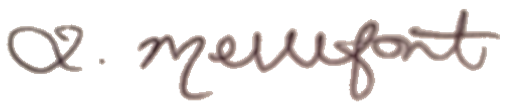 A. Mellefont